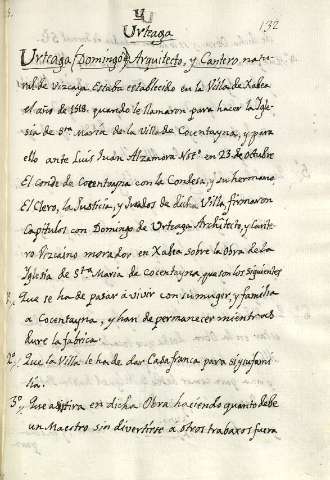 U
132
Urteaga
Urteaga (Domingo) Arquitecto, y Cantero natu
ral de Vizcaya Estaba establecido en la Villa de Xabea
el año de 1518. quando le llamaron para hacer la Igle
sia de Sta Maria de la Villa de Cocentayna, y para
ello ante Luis Juan Alzamora Noto en 23 de octubre
El conde de Cocentayna con la Condesa, y su hermano
El Clero, la Justicia, y Jurados de dicha Villa, firmaron
Capitulos con Domingo de Urteaga Archîtecto, y Cante
ro Vizcaino morador en Xabea sobre la Obra de la
Iglesia de Sta Maria de Cocentayna que son los siguientes
1º,, Que se ha de pasar á vivir con su muger, y familia
a Cocentayna, y han de permanecer mientras
dure la fabrica.
2º,, Que la Villa le ha de dar Casa franca para si y su fami
lia.
3º,, Que asistira en dicha Obra haciendo quanto debe
un Maestro sin divertirse á otros trabaxos fuera